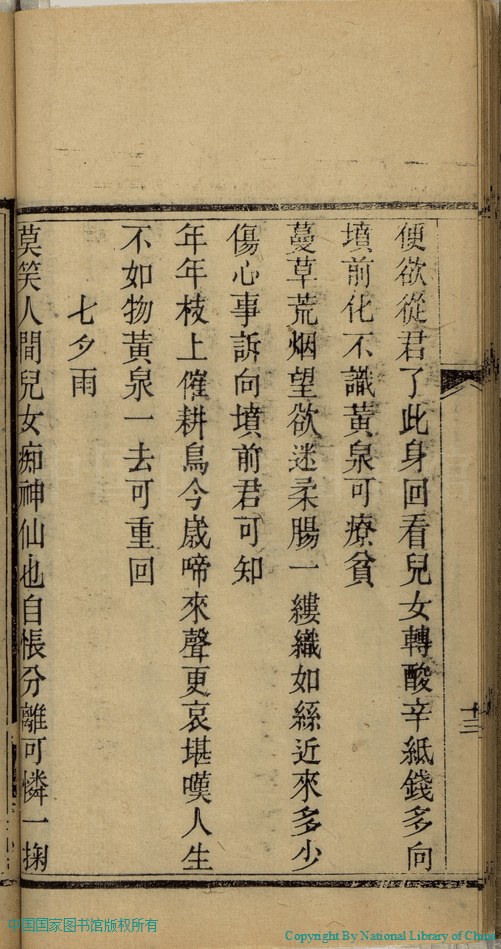 便欲從君了此身回看兒女轉酸辛紙錢多向
墳前化不識黃泉可療貧
蔓草荒烟望欲迷柔腸一縷織如絲近來多少
傷心事訴向墳前君可知
年年枝上催耕鳥今歲啼來聲更哀堪嘆人生
不如物黃泉一去可重回
七夕雨
莫笑人間兒女痴神仙也自悵分離可憐一掬
十三
中国国家图书馆版权所有
Copyright By National Library of China